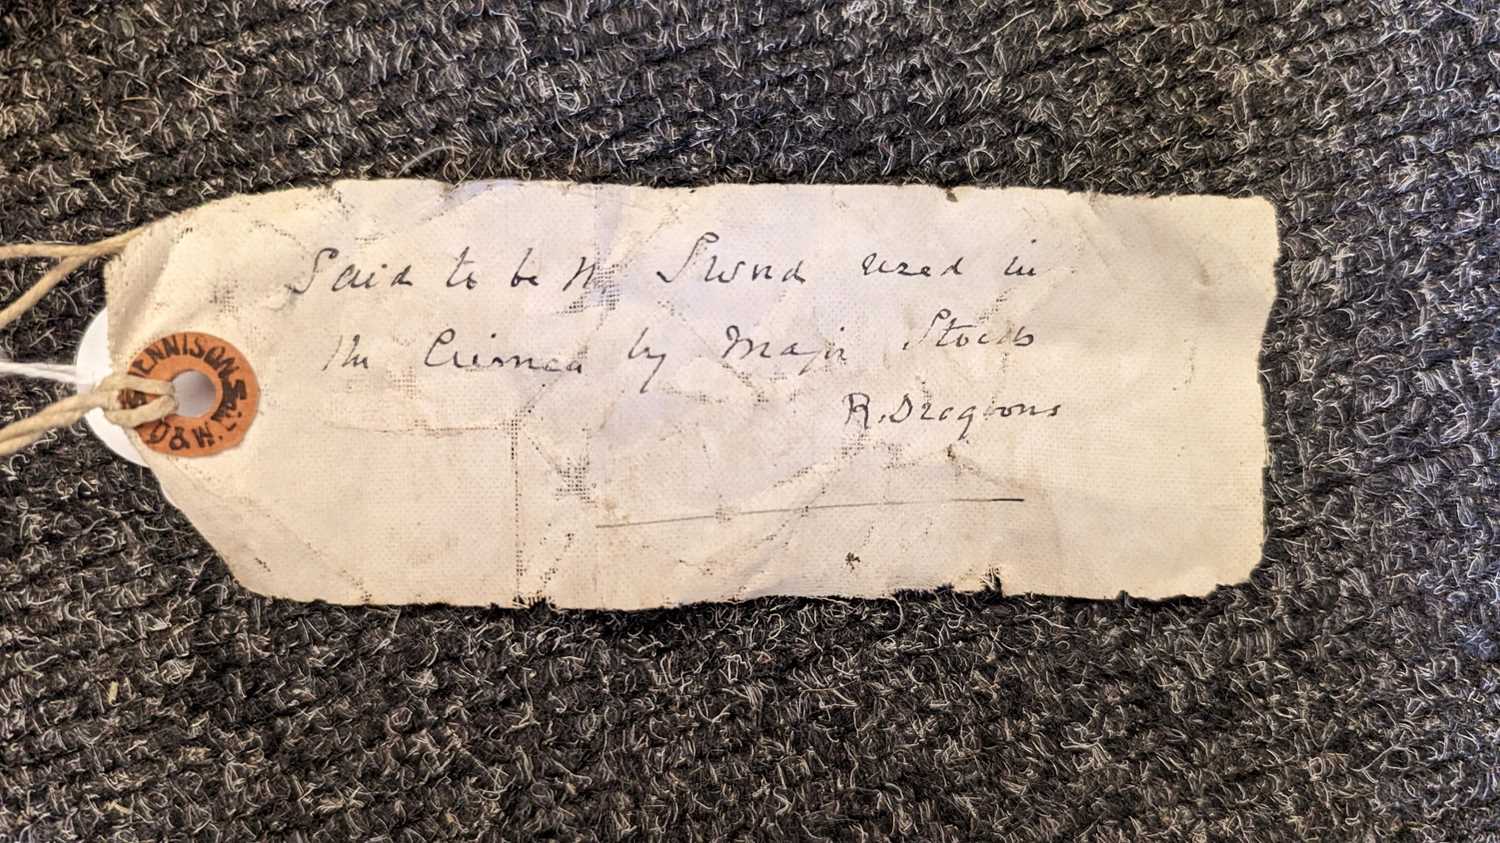 Said to be the Sword used in
the Crimea by Major Stocks
R. Dragoons
DENNISON
D & W. L